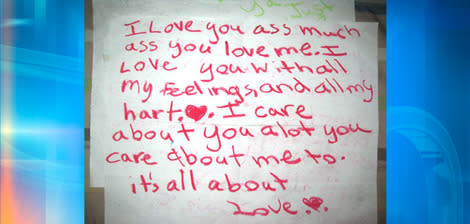 I Love you ass much
ass you love me. I
Love you with all
my feelings, and all my
hart.❤. I care
about you alot you
care about me to.
it's all about
Love.❤.